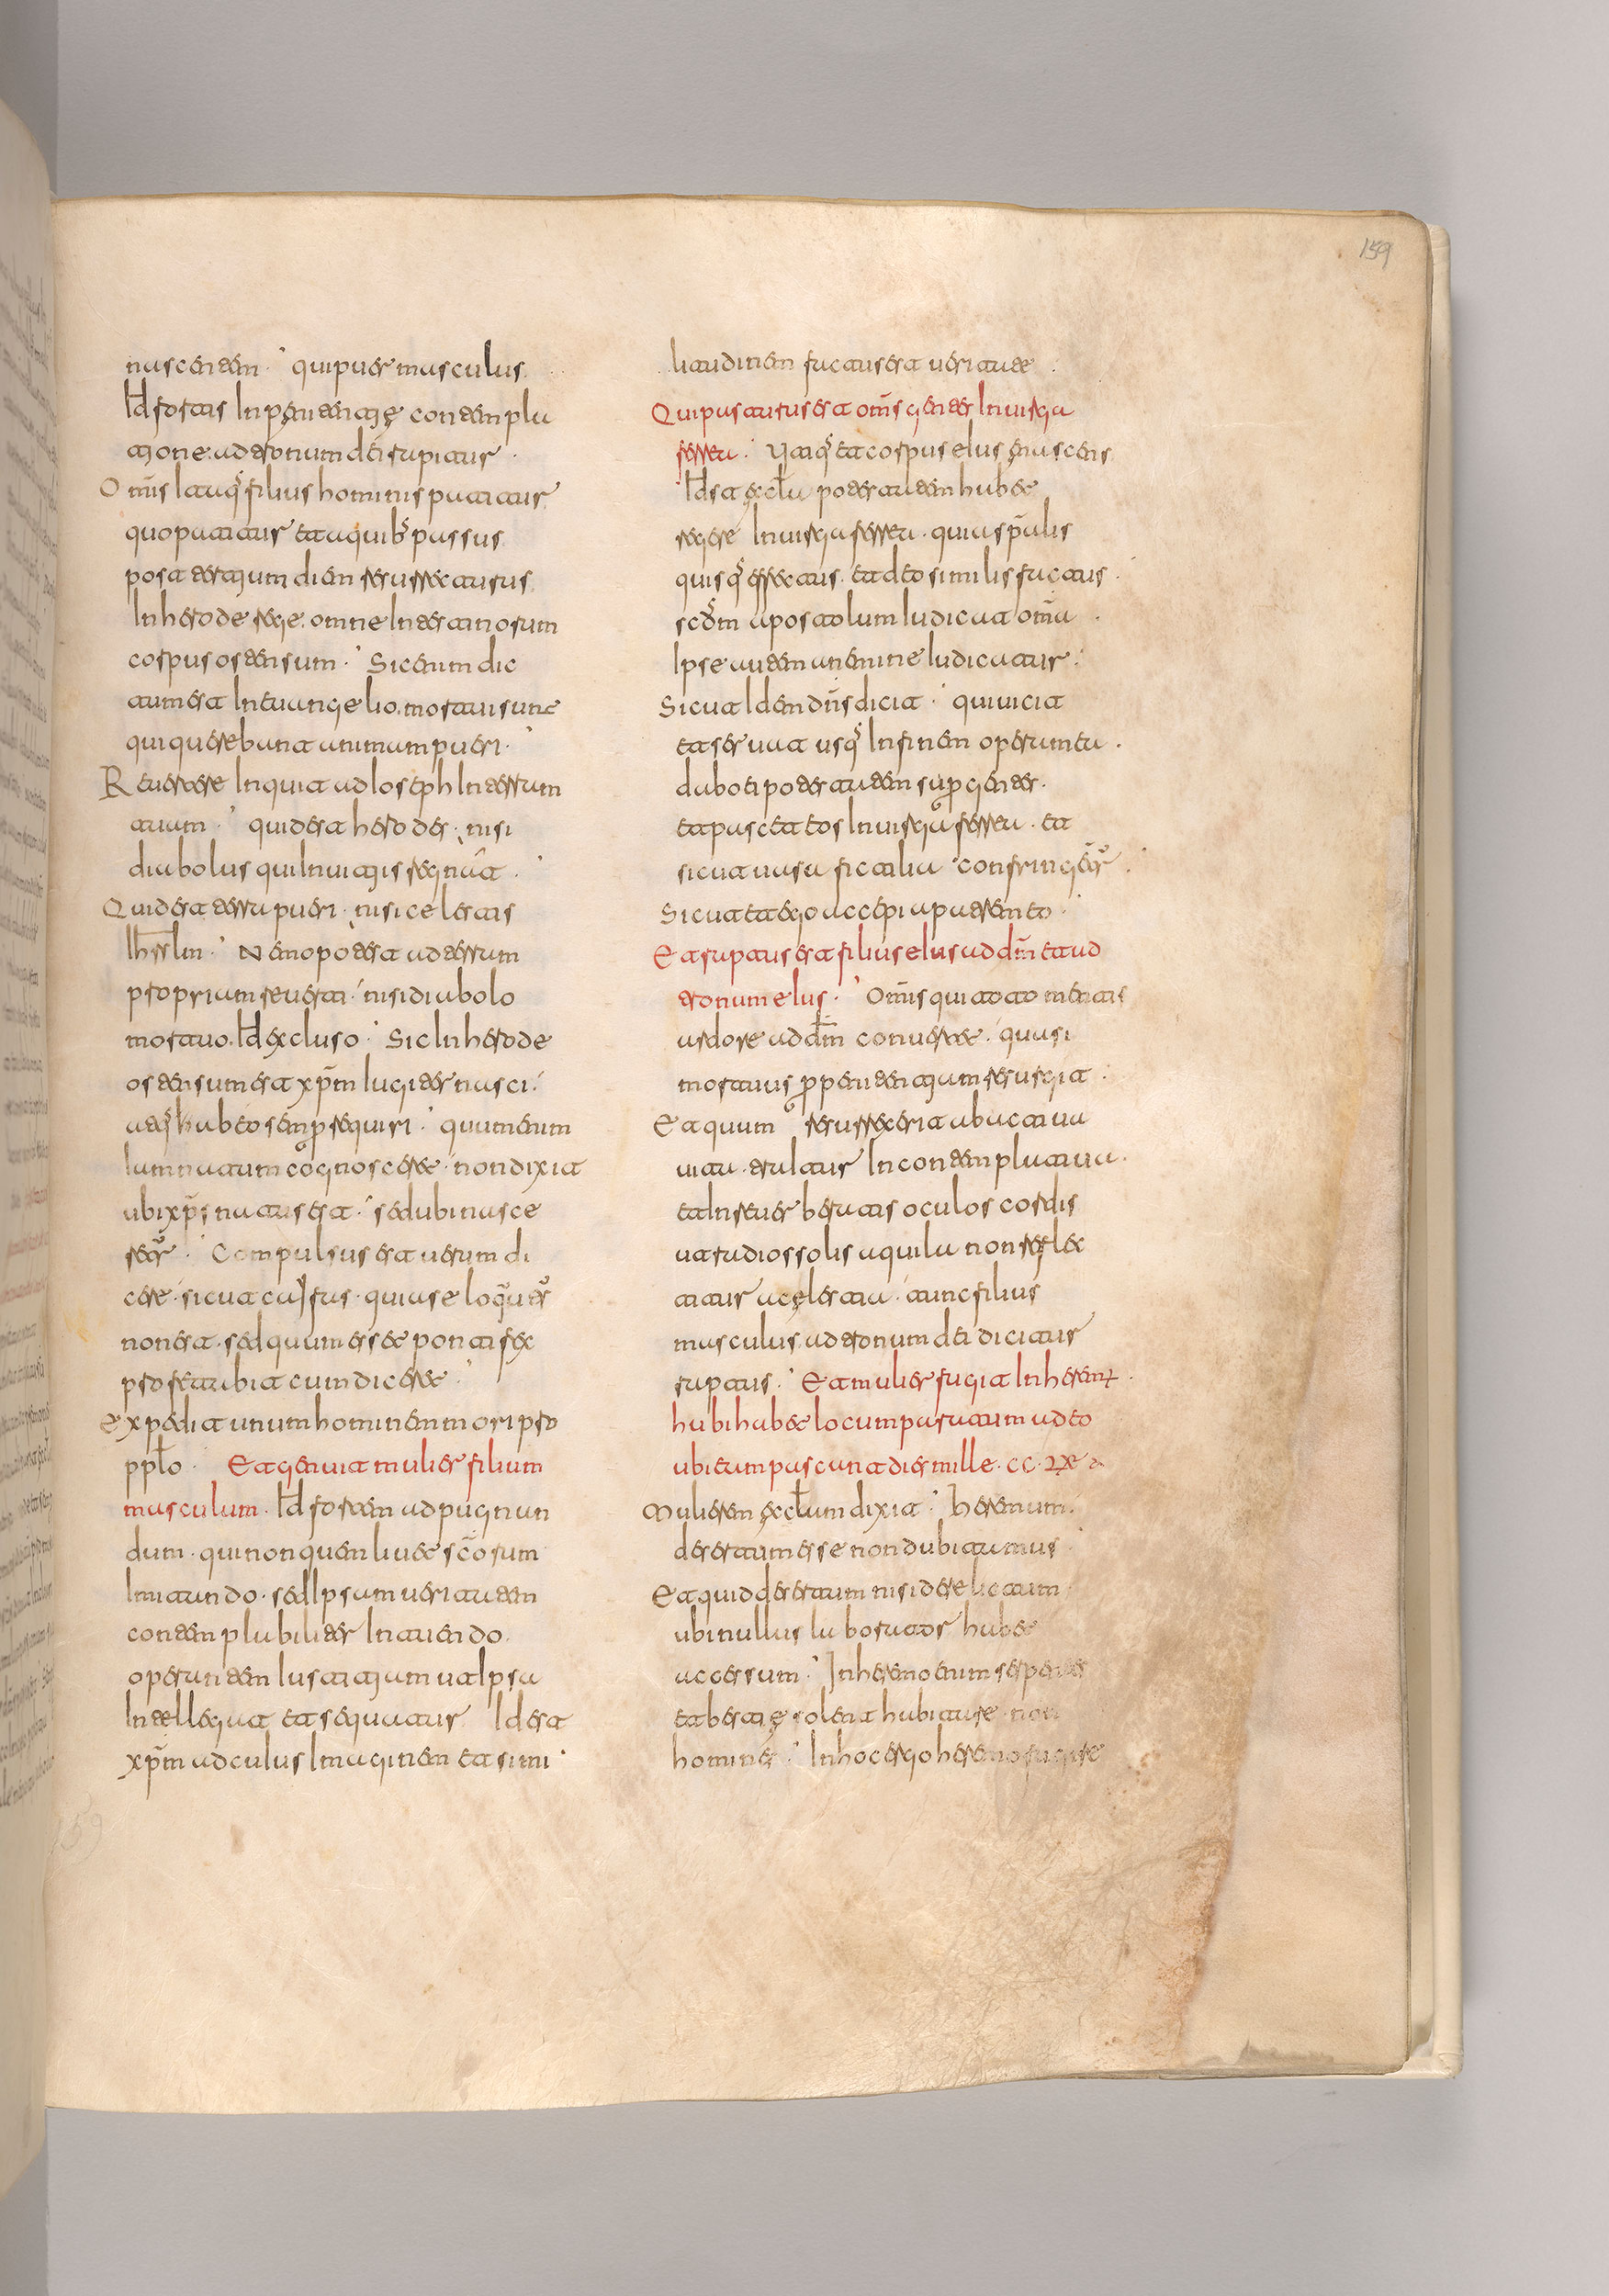 nascentem · qui puer masculus
Id fortis In penitentie contempla
tione ad tronum dei rapitur ·
Oms Itaq filius hominis patitur
quo patitur et a quibs passus
post tertium diem resurrecturus
In herode rege omne
corpus ostensum · Sic enim dic
tum est In euangelio · mortui sunt
qui querebant animam pueri ·
Reuertere Inquit ad Ioseph In terram
tuam · quid est herodes · nisi
diabolus qui Inuitiis regnat ·
Quid est terra pueri · nisi celestis
Ihrslm · Nemo potest ad terram
propriam reuerti · nisi diabolo
mortuo · Id excluso · Sic In herode
ostensum est xpm Iugiter nasci ·
atq hab eo semp requiri · quum enim
Iam natum cognosceret · non dixit
ubi xps natus est · sed ubi nasce
retr · Compulsus est uerum di
cere · sicut caifas · quia a se loquens
non est · sed quum esset pontifex
profetabit cum diceret ·
Expedit unum hominem mori pro
pplo · Et genuit mulier filium
masculum · Id fortem ad pugnan
dum · qui non quemlibet scorum
Imitando · sed Ipsum ueritatem
contemplabiliter Intuendo
operantem Iustitiam ut Ipsa
Intellegat et sequatur Id est
xpm ad cuius Imaginem et simi
litudinem factus est ueritate ·
Qui pasturus est oms gentes In uirga
ferrea · Utiq et corpus eius enascens
Id est ecla potestatem habet
regere In uirga ferrea · quia spalis
quisq effectus · et deo similis factus ·
scdm apostolum Iudicat oma ·
Ipse autem a nemine Iudicatur ·
Sicut Idem dns dicit · qui uicit
et seruat usq In finem opera mea ·
dabo ei potestatem sup gentes ·
et pascet eos In uirga ferrea · et
sicut uasa fictilia confringentr ·
Sicut et ego accepi a patre meo ·
Et raptus est filius eius ad dm et ad
tronum eius · Oms qui toto mentis
ardore ad dm conuertet · quasi
mortuus p penitentium resurgit ·
Et quum resurrexerit ab actiua
uita · In contemplatiua ·
et Inreuerberatis oculos cordis
ut radios solis aquila non reflec
titur a celestia · tunc filius
masculus ad tronum dei dicitur
raptus · Et mulier fugit In heremum ·
habi habet locum paratum ad eo
ubi eum pascunt dies mille · CC · LX ta
Mulierem eclam dixit · heremum ·
desertum esse non dubitamus ·
Et quid desertum nisi derelictum
ubi nullus laborator habet
accessum · In heremo enim serpentes
et bestie solent habitare · non
homines · In hoc ergo heremo fugire
159